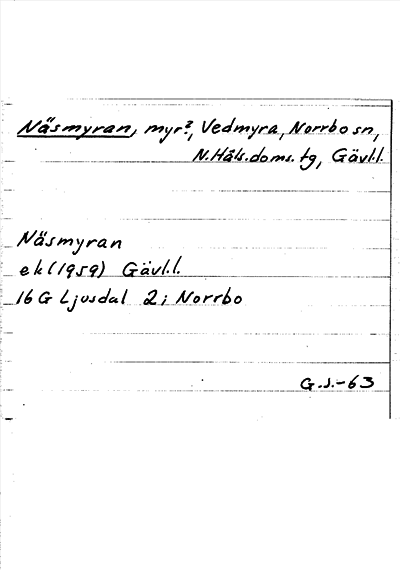 Näsmyran, myr?, Vedmyra, Norrbo sn,
N.Häls.doms.tg, Gävl.l.
Näsmyran
ek (1959) Gävl.l.
16 G Ljusdal 2i Norrbo
G.J.-63